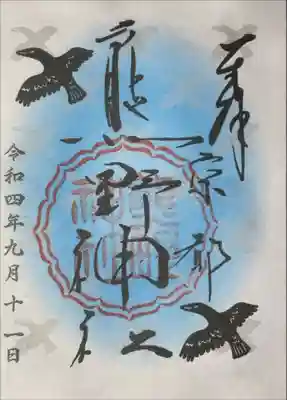 奉拝
京都
熊野神社
令和四年九月十一日